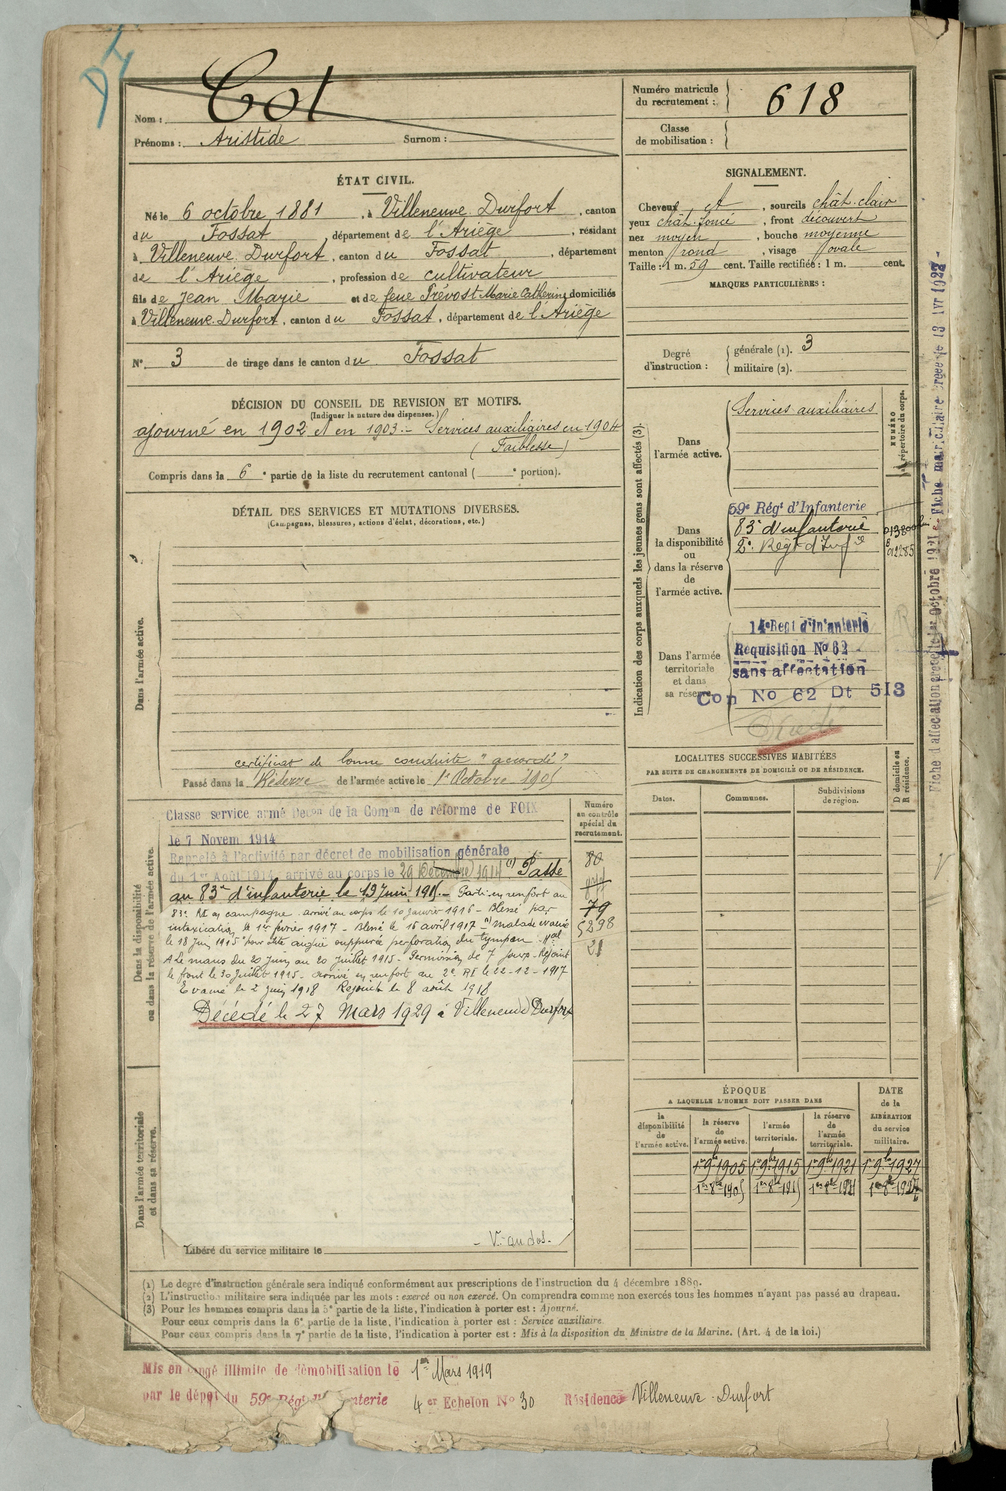 Nom : Cot
Prénoms : Aristide Surnom :
Numéro matricule
du recrutement : 618
Classe
de mobilisation :
ÉTAT CIVIL.
Né le 6 octobre 1881, à Villeneuve Durfort, canton
du Fossat, département de l'Ariège, résidant
à Villeneuve Durfort, canton du Fossat, département
de l'Ariège, profession de cultivateur
fils de Jean Marie et de feue Prévost Marie Catherine domiciliés
à Villeneuve-Durfort, canton du Fossat, département de l'Ariège
N° 3 de tirage dans le canton du Fossat
SIGNALEMENT.
Cheveux et, sourcils chât-clair
yeux chât. foncé, front découvert
nez moyen, bouche moyenne
menton rond, visage ovale
Taille : 1 m. 59 cent. Taille rectifiée : 1 m. cent.
MARQUES PARTICULIÈRES :
Degré
d'instruction :
générale (1). 3
militaire (2).
DÉCISION DU CONSEIL DE REVISION ET MOTIFS.
(Indiquer la nature des dispenses.)
ajourné en 1902 et en 1903 - Services auxiliaires en 1904
(Faiblesse)
Compris dans la 6e partie de la liste du recrutement cantonal ( e portion).
DÉTAIL DES SERVICES ET MUTATIONS DIVERSES.
(Campagnes, blessures, actions d'éclat, décorations, etc.)
Dans l'armée active.
certificat de bonne conduite "accordé"
Passé dans la Réserve de l'armée active le 1er Octobre 1905
Indication des corps auxquels les jeunes gens sont affectés (3).
NUMÉRO
au répertoire du corps.
Dans
l'armée active.
Services auxiliaires
Dans
la disponibilité
ou
dans la réserve
de
l'armée active.
59e Régt d'Infanterie
83e d'infanterie
2e Régt d'Infie
Dans l'armée
territoriale
et dans
sa réserve.
14e Regt d'Infanterie
Réquisition No 62
sans affectation
Con No 62 Dt 513
Décédé
Fiche matriculaire
LOCALITÉS SUCCESSIVES HABITÉES
PAR SUITE DE CHANGEMENTS DE DOMICILE OU DE RÉSIDENCE.
Dates.
Communes.
Subdivisions
de région.
D domicile ou
R résidence.
Dans la disponibilité
ou dans la réserve de l'armée active.
Numéro
au contrôle
spécial du
recrutement.
80
79
5298
21
Classe service armé Decon de la Comon de réforme de FOIX
le 7 Novem 1914
Rappelé à l'activité par décret de mobilisation générale
du 1er Août 1914, arrivé au corps le 29 Décembre 1914 (1) Passé
au 83e d'infanterie le 19 Juin 1915. - Parti en renfort au
83e RI en campagne arrivé au corps le 10 janvier 1916 - Blessé par
intoxication le 1er février 1917 - Blessé le 15 avril 1917 (1) Malade évacué
le 18 Juin 1915 pour otite aigue suppurée perforation du tympan
A Le mans du 20 Juin au 20 Juillet 1915 - Permission de 7 jours - Rejoint
le front le 30 Juillet 1915 - arrivé en renfort au 2e RI le 22-12-1917
Evacué le 2 juin 1918 Rejoint le 8 août 1918
Décédé le 27 Mars 1929 à Villeneuve Durfort
Dans l'armée territoriale
et dans sa réserve.
V. au dos.
Libéré du service militaire le
ÉPOQUE
A LAQUELLE L'HOMME DOIT PASSER DANS
DATE
de la
LIBÉRATION
du service
militaire.
la
disponibilité
de
l'armée active.
la réserve
de
l'armée active.
l'armée
territoriale.
la réserve
de
l'armée
territoriale.
1er 9bre 1905 1er 9bre 1915 1er 9bre 1921 1er 9bre 1927
1er 8bre 1905 1er 8bre 1915 1er 8bre 1921 1er 8bre 1927
(1) Le degré d'instruction générale sera indiqué conformément aux prescriptions de l'instruction du 4 décembre 1889.
(2) L'instruction militaire sera indiquée par les mots : exercé ou non exercé. On comprendra comme non exercés tous les hommes n'ayant pas passé au drapeau.
(3) Pour les hommes compris dans la 5e partie de la liste, l'indication à porter est : Ajourné.
Pour ceux compris dans la 6e partie de la liste, l'indication à porter est : Service auxiliaire.
Pour ceux compris dans la 7e partie de la liste, l'indication à porter est : Mis à la disposition du Ministre de la Marine. (Art. 4 de la loi.)
Mis en congé illimité de démobilisation le 1er Mars 1919
par le dépôt du 59e Régt d'Infanterie 4er Echelon No 30 Résidence Villeneuve-Durfort